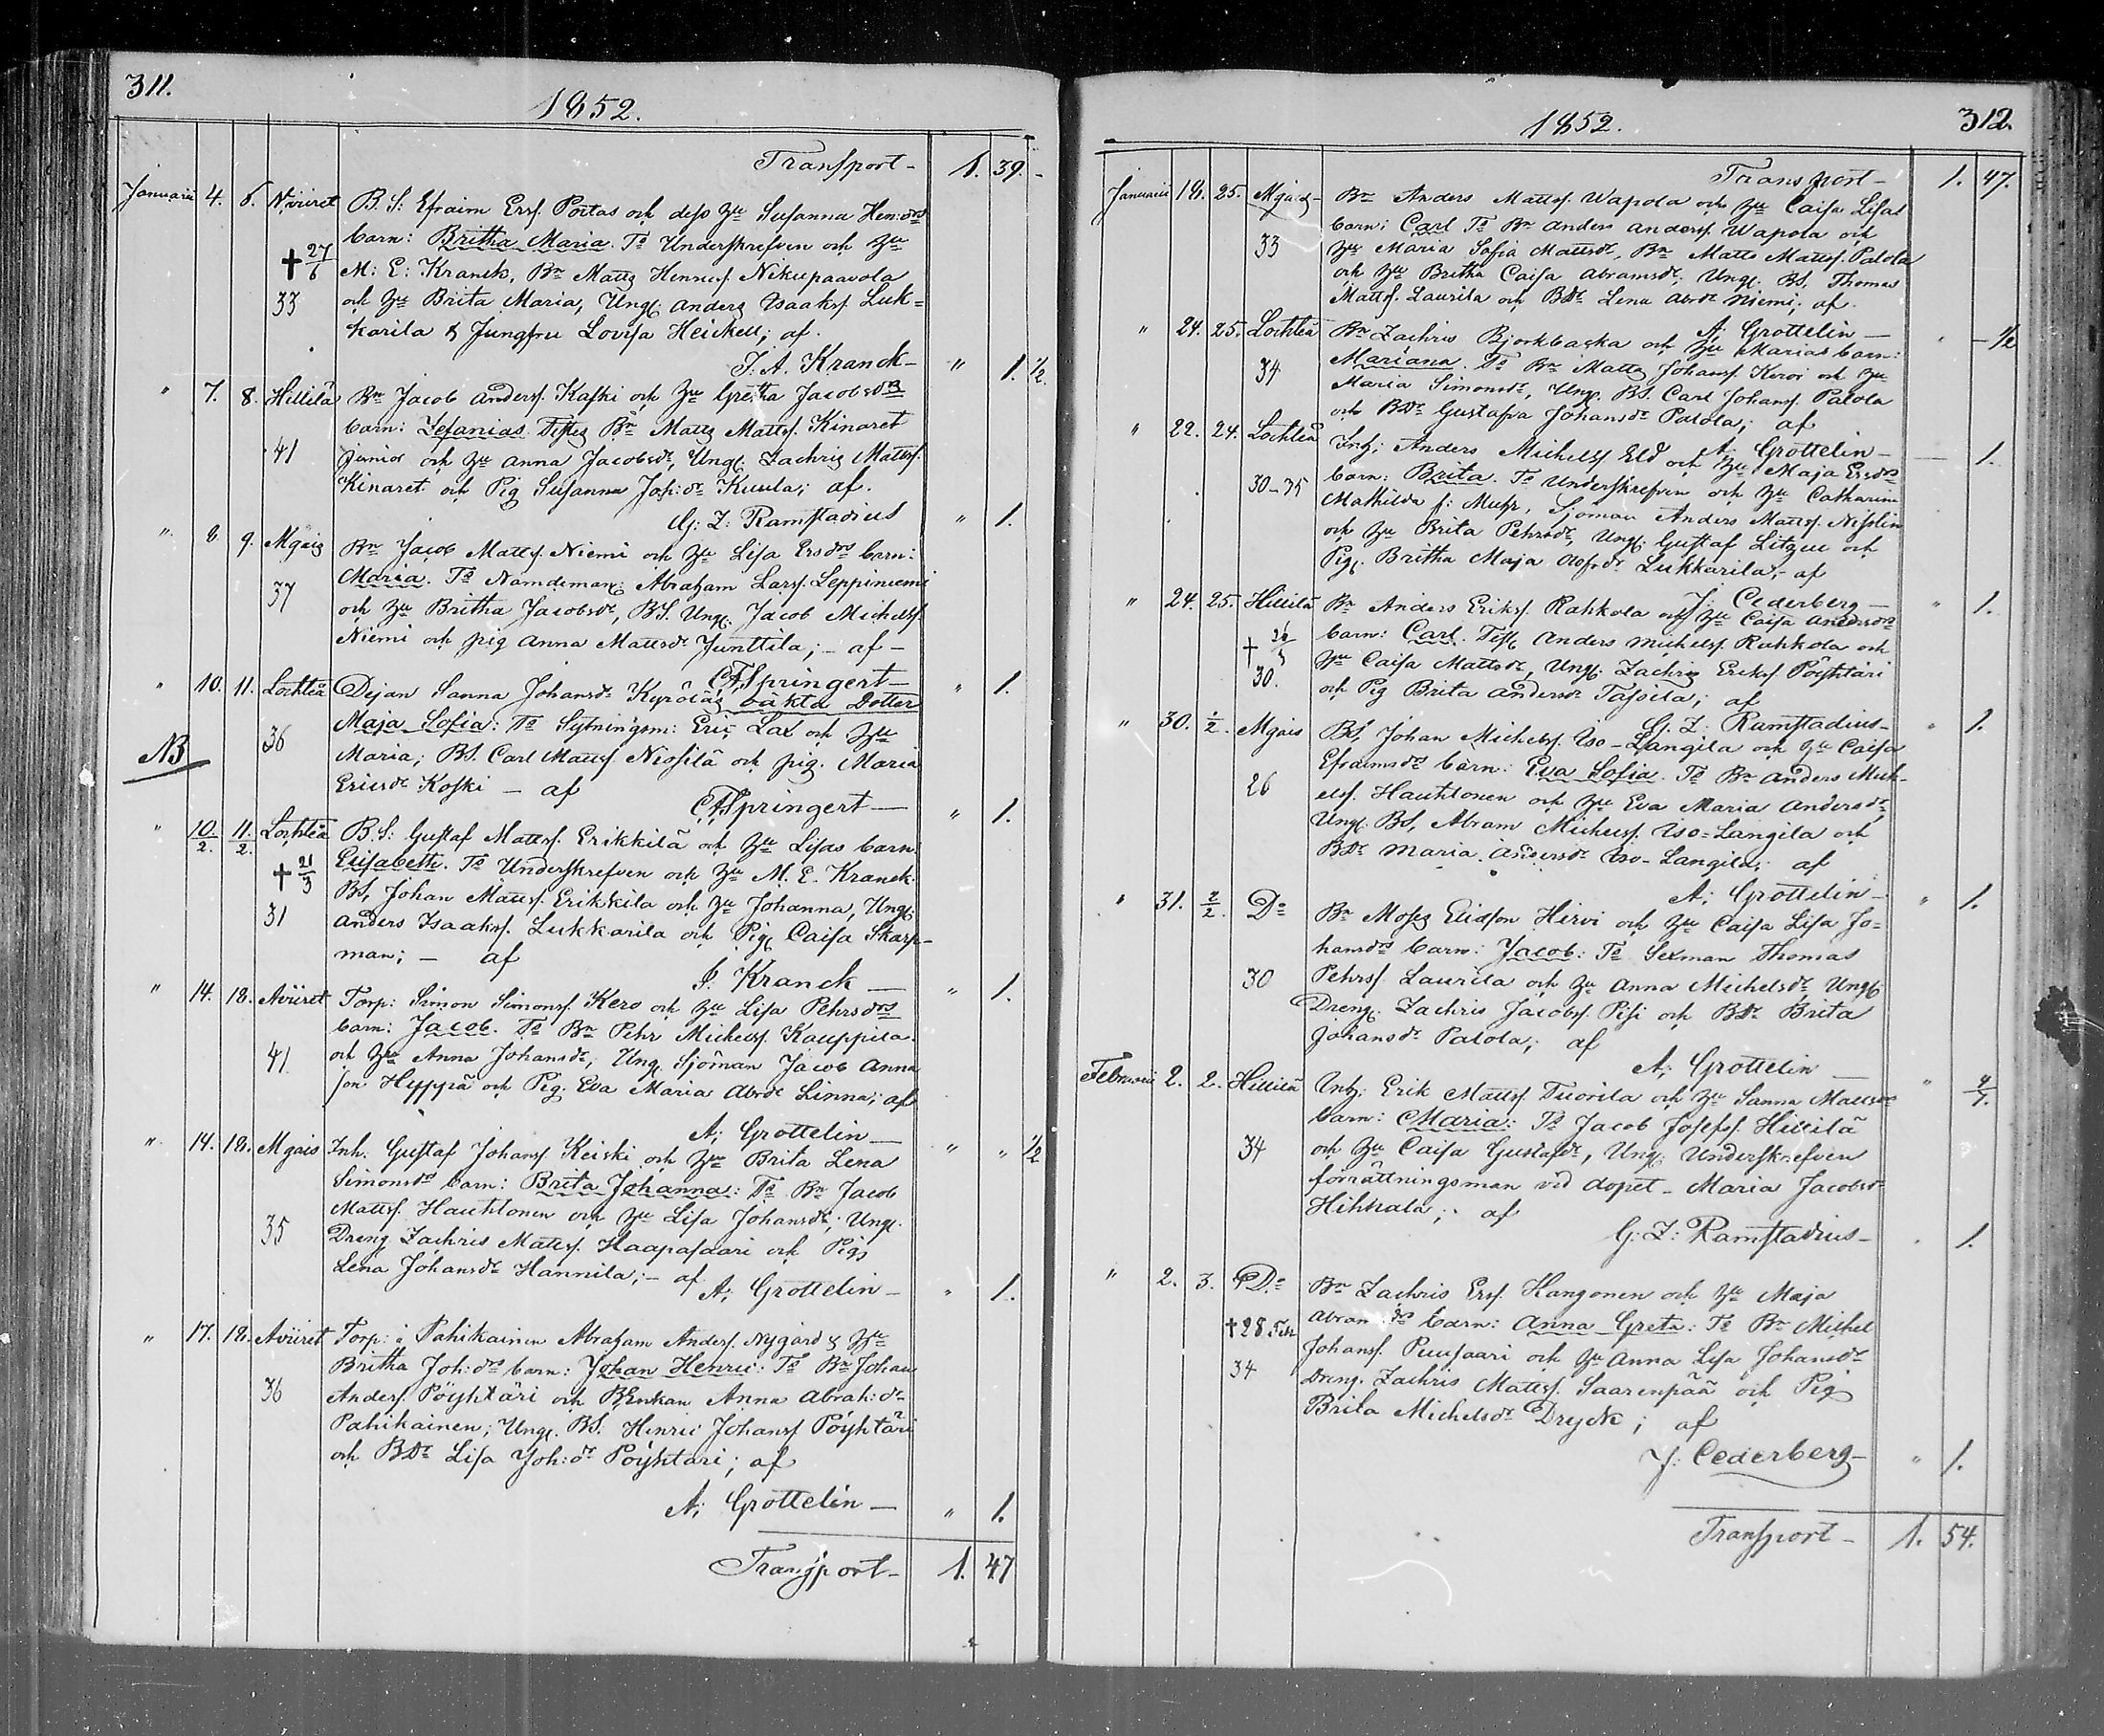 311.
1852.
Transport - 1. 39. -
Januarii 4. 6. N:viiret B. S: Efraim Ersf. Portas och dess Hu Susanna Hen:drs
barn: Britha Maria. Ts Underskrefven och Hu
† 27/6 M: E: Kranck, Bn Matts Hennesf. Nikupaavola
33 och Hu Brita Maria, Ungl. Anders Isaaksf. Luk=
karila & Jungfru Lovisa Heickell; af.
J. A. Kranck - " 1. 1/2.
" 7. 8. Hillilä Bn Jacob Andersf. Kaski och Hu Gretha Jacobsdrs
barn: Zefanias. Testes Bn Matts Mattsf. Kinaret
41 junior och Hu Anna Jacobsdr, Ungl. Zachris Mattsf.
Kinaret och Pig Susanna Jos:dr Kuula; af.
G: Z: Ramstadius " 1.
" 8. 9. Mgais Bn Jacob Mattsf. Niemi och Hu Lisa Ersdrs barn:
Maria. Ts Nämdeman: Abraham Larsf. Leppiniemi
37 och Hu Britha Jacobsdr, BS. Ungl. Jacob Michelsf.
Niemi och pig Anna Mattsdr Junttila; - af -
CA Springert - " 1.
" 10. 11. Lochteå Dejan Sanna Johansdr Kyröläs oäkta Dotter
36 Maja Sofia: Ts Sytningsm: Eric Lax och Hu
NB Maria; BS. Carl Mattsf Nissilä och pig. Maria
Ericsdr Koski - af
CA Springert - " 1.
" 10./2. 11./2. Lochteå B. S: Gustaf Mattsf. Erikkilä och Hu Lisas barn
† 21/3 Elisabeth. Ts Underskrefven och Hu M. E. Kranck.
BS, Johan Mattsf. Erikkila och Hu Johanna, Ungl.
31 Anders Isaaksf. Lukkarila och Pig Caisa Skarp-
man; - af
J. Kranck - " 1.
" 14. 18. Aviiret Torp: Simon Simonsf. Kero och Hu Lisa Pehrsdrs
barn: Jacob. Ts Bn Pehr Michelsf. Kauppila
41 och Hu Anna Johansdr; Ung. Sjöman Jacob Anna
son Hyppä och Pig. Eva Maria Abrdr Linna; af
A; Grottelin - " " 1/2
" 14. 18. Mgais Inh. Gustaf Johansf Keiski och Hu Brita Lena
Simonsdrs barn: Brita Johanna: Ts Bn Jacob
Mattsf. Hauhtonen och Hu Lisa Johansdr; Ungl.
35 Dreng Zachris Mattsf. Haapasaari och Pig
Lena Johansdr Hannila; - af
A; Grottelin - " 1.
" 17. 18. Aviiret Torp: i Pahikainen Abraham Andersf. Nygård & Hu
Britha Joh:drs barn: Johan Henric: Ts Bn Johan
36 Andersf. Pöyhtäri och B,Enkan Anna Abrah:dr
Pahikainen; Ungl. BS. Henric Johansf Pöyhtäri
och BDr Lisa Joh:dr Pöyhtäri; af
A; Grottelin - " 1.
Transport - 1. 47
312.
1852.
Transport - 1. 47.
Januarii 18. 25. Mgais - Bn Anders Mattsf. Wapola och Hu Caisa Lisas
barn: Carl Ts Bn Anders Andersf. Wapola och
33 Hu Maria Sofia Mattsdr, Bn Matts Mattsf. Palola
och Hu Britha Caisa Abramsdr, Ungl. BS, Thomas
Mattsf. Laurila och BDr Lena Abrdr Niemi; af.
A; Grottelin - " - 1/2
" 24. 25. Lochteå Bn Zachris Björkbacka och Hu Marias barn:
34 Mariana. Ts Bn Matts Johansf. Kervi och Hu
Maria Simonsdr, Ungl. BS. Carl Johansf. Palola
och BDr Gustafva Johansdr Palola; af
A; Grottelin - 1.
" 22. 24. Lochteå Inh; Anders Michelsf Eld och Hu Maja Ersdrs
30-35 barn: Brita. Ts Underskrefven och Hu Catharina
Mathilda f: Muhr, Sjöman Anders Mattsf. Nisslin
och Hu Brita Pehrsdr, Ungl. Gustaf Litzen och
Pig. Britha Maja Olofsdr Lukkarila; af
J: Cederberg - " 1.
" 24. 25. Hillilä Bn Anders Eriksf. Rahkola och Hu Caisa Andersdrs
† 26/5 barn: Carl. Test. Anders Michelsf. Rahkola och
30. Hu Caisa Mattsdr, Ungl. Zachris Eriksf Pöyhtäri
och Pig Brita Andersdr Tassila; af
G. Z: Ramstadius - " 1.
" 30. 1/2. Mgais BS, Johan Michelsf. Iso-Langila och Hu Caisa
Efraimsdrs barn: Eva Sofia. Ts Bn Anders Mich-
26 elsf. Hauhtonen och Hu Eva Maria Andersdr
Ungl. BS, Abram Michelsf. Iso=Langila och
BDr Maria Andersdr Iso-Langila; af
A; Grottelin - " 1.
" 31. 2/2. Do Bn Moses Eliasson Hirvi och Hu Caisa Lisa Jo=
hansdrs barn: Jacob: Ts Sexman Thomas
30 Pehrsf. Laurila och Hu Anna Michelsdr Ungl.
Dreng. Zachris Jacobsf. Pesi och BDr Brita
Johansdr Palola; af
A; Grottelin -
Februarii 2. 2. Hillilä Inh; Erik Mattsf Tuorila och Hu Sanna Mattsdrs
barn: Maria: Ts Jacob Josefsf. Hillilä
34 och Hu Caisa Gustafdr, Ungl. Underskrefven
förrättningsman vid dopet - Maria Jacobsdr
Hihkala; af
G: Z: Ramstadius - " 1.
" 2. 3. Do Bn Zachris Ersf. Hangonen och Hu Maja
† 28 Febr Abramsdrs barn: Anna Greta: Ts Bn Michel
34 Johansf. Puusaari och Hu Anna Lisa Johansdr
Dreng. Zachris Mattsf. Saarenpää och Pig
Brita Michelsdr Dryck; af
J: Cederberg - " 1.
Transport - 1. 54.